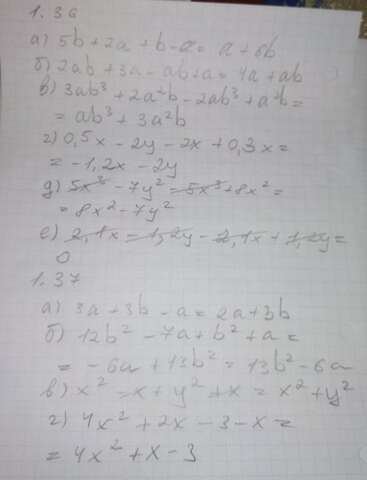 1.36
а) 5b + 2a + b - a = a + 6b
б) 2ab + 3a - ab + a = 4a + ab
в) 3ab³ + 2a²b - 2ab³ + a²b =
= ab³ + 3a²b
г) 0,5x - 2y - 2x + 0,3x =
= -1,2x - 2y
д) 5x³ - 7y² = 5x³ + 8x² =
= 8x² - 7y²
е) 2,1x - 1,2y - 2,1x + 1,2y =
0
1.37
а) 3a + 3b - a = 2a + 3b
б) 12b² - 7a + b² + a =
= -6a + 13b² = 13b² - 6a
в) x² - x + y² + x = x² + y²
г) 4x² + 2x - 3 - x =
= 4x² + x - 3